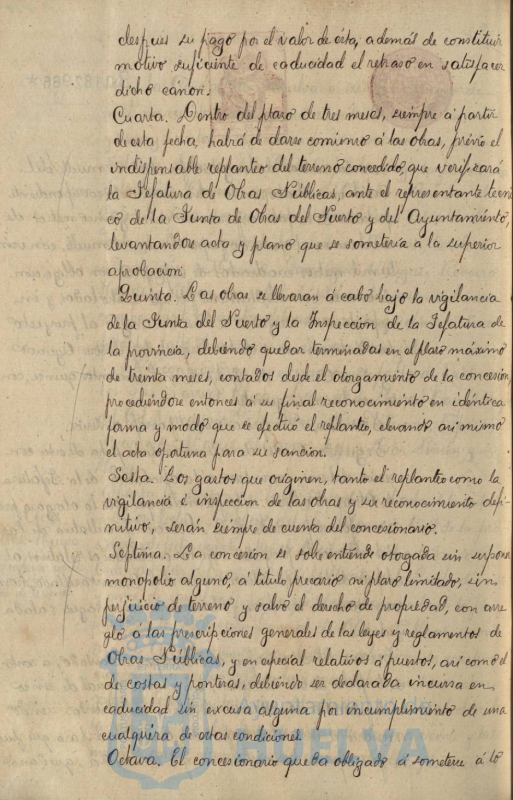 despues su pago por el valor de esta, además de constituir
motivo suficiente de caducidad el retraso en satisfacer
dicho cánon.
Cuarta. Dentro del plazo de tres meses, siempre á partir
de esta fecha, habrá de darse comienzo á las obras, prévio el
indispensable replanteo del terreno concedido, que verificará
la Jefatura de Obras Públicas, ante el representante tecni-
co de la Junta de Obras del Puerto y del Ayuntamiento,
levantandose acta y plano que se sometería á la superior
aprobacion
Quinta. Las obras se llevaran á cabo bajo la vigilancia
de la Junta del Puerto y la Inspección de la Jefatura de
la provincia, debiendo quedar terminadas en el plazo máximo
de treinta meses, contados desde el otorgamiento de la concesión,
procediéndose entonces á su final reconocimiento en idéntica
forma y modo que se efectuó el replanteo, elevando asi mismo
el acta oportuna para su sanción.
Sesta. Los gastos que originen, tanto el replanteo como la
vigilancia é inspeccion de las obras y su reconocimiento defi-
nitivo, serán siempre de cuenta del concesionario.
Septima. La concesion se sobre entiende otorgada sin suponer
monopolio alguno, á titulo precario ni plazo limitado, sin
perjuicio de terreno y salvo el derecho de propiedad, con arre
glo á las prescripciones generales de las leyes y reglamentos de
Obras Públicas, y en especial relativos á puertos, asi como de
de costas y fronteras, debiendo ser declarada incursa en
caducidad sin excusa alguna por incumplimiento de una
cualquiera de estas condiciones.
Octava. El concesionario queda obligado á someterse á lo
HUELVA